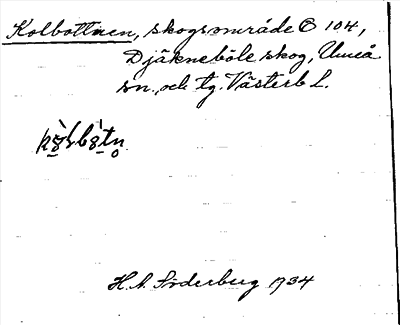 Kolbottnen, skogsområde Ⓒ 104,
Djäkneböle skog, Umeå
sn. och tg. Västerb L.
H. A. Söderberg 1934